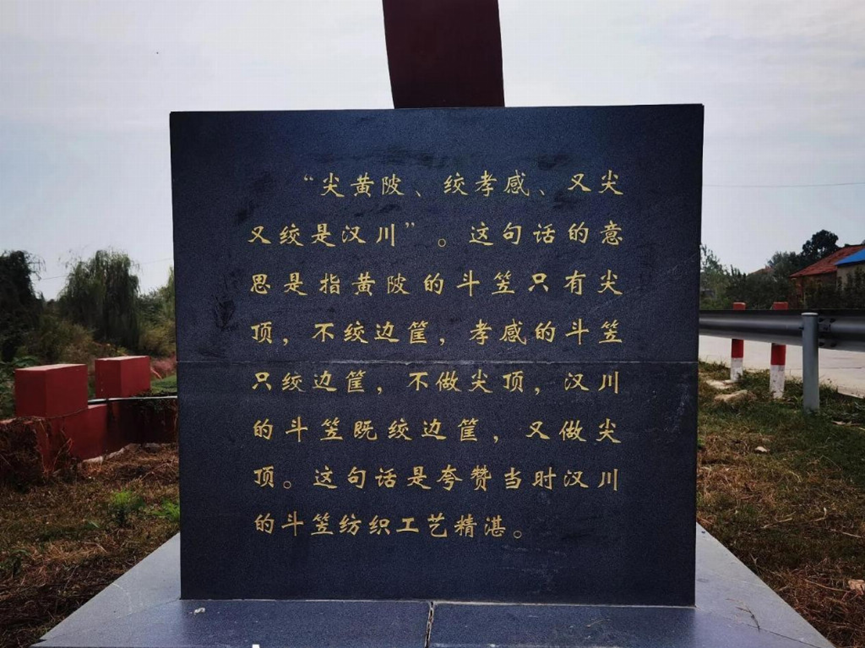 “尖黄陂、绞孝感、又尖
又绞是汉川”。这句话的意
思是指黄陂的斗笠只有尖
顶，不绞边筐，孝感的斗笠
只绞边筐，不做尖顶，汉川
的斗笠既绞边筐，又做尖
顶。这句话是夸赞当时汉川
的斗笠纺织工艺精湛。